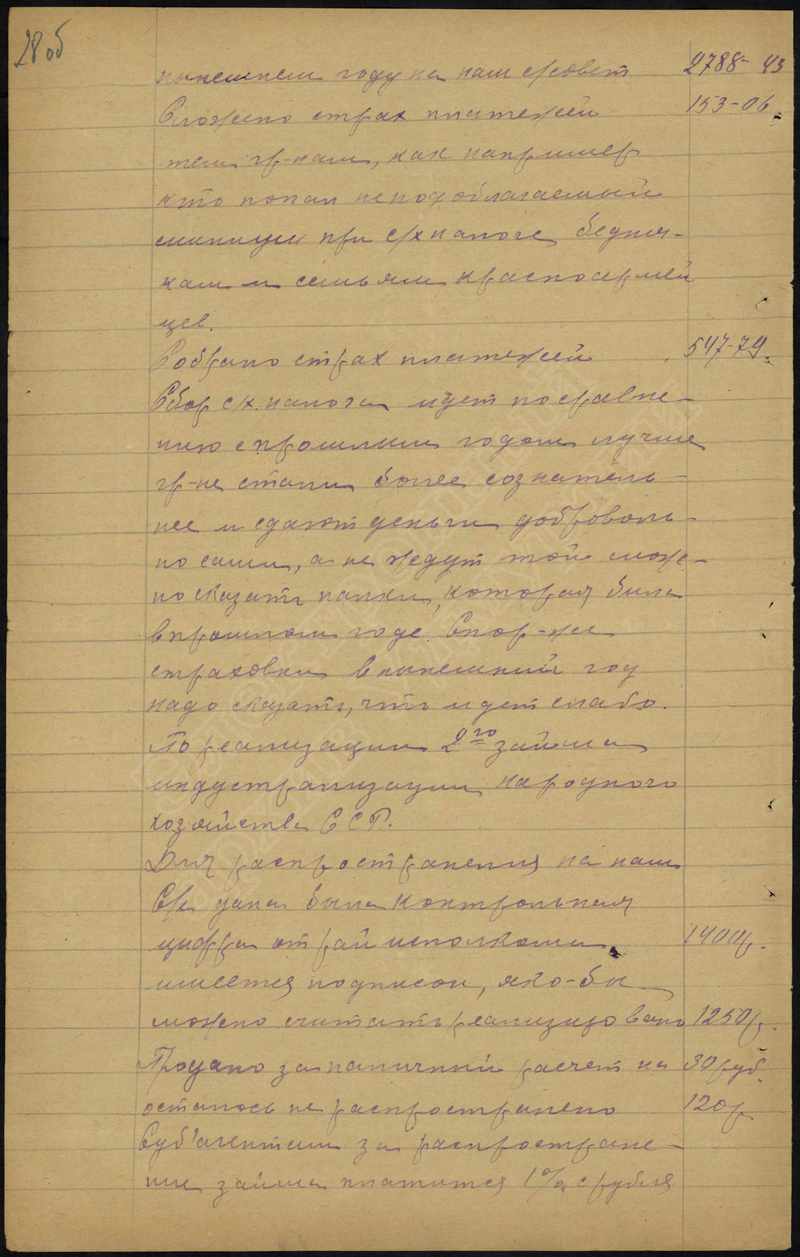 28 об
нынешнем году на наш с/совет 2788-43
Сложено страх платежей 153-06.
тем гр-нам, как например
кто попал не под облагаемый
минимум при с/х налоге бедня-
кам и семьям красноармей
цев.
Собрано страх платежей 547-79.
Сбор с/х. налога идет по сравне-
нию с прошлым годом лучше
гр-не стали более сознатель-
нее и сдают деньги доброволь-
но сами, а не ждут той можно
но сказать палки, которая была
в прошлом годе.
страховки в нынешний год
надо сказать, что идет слабо.
По реализации 2го займа
индустрализации народного
хозяйства ССР.
Для распространения на наш
С/с дана была контрольная
цифра от райисполкома 1400р.
имеется подписой, яко-бы
можно считать реализировано 1250р.
Продано за наличный расчет на 30 руб.
осталось не распространено 120р
Суб'агентам за распростране-
ние займа платится 1% с рубля